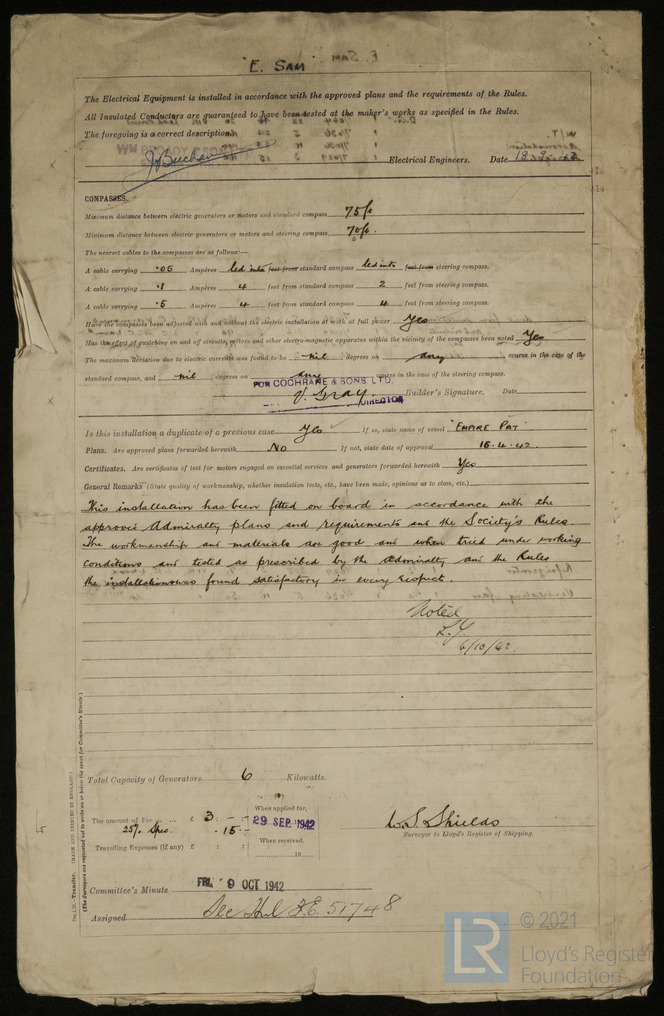 "E. SAM"
The Electrical Equipment is installed in accordance with the approved plans and the requirements of the Rules.
All Insulated Conductors are guaranteed to have been tested at the maker's works as specified in the Rules.
The foregoing is a correct description.
Electrical Engineers. Date 18.9.42
COMPASSES.
Minimum distance between electric generators or motors and standard compass 75 ft
Minimum distance between electric generators or motors and steering compass 70 ft.
The nearest cables to the compasses are as follows:—
A cable carrying .05 Ampères led into feet from standard compass led into feet from steering compass.
A cable carrying .1 Ampères 4 feet from standard compass 2 feet from steering compass.
A cable carrying .5 Ampères 4 feet from standard compass 4 feet from steering compass.
Have the compasses been adjusted with and without the electric installation at work at full power Yes
Has the effect of switching on and off circuits, motors and other electro-magnetic apparatus within the vicinity of the compasses been noted Yes
The maximum deviation due to electric currents was found to be nil degrees on any course in the case of the
standard compass, and nil degrees on any course in the case of the steering compass.
FOR COCHRANE & SONS LTD.
V. Gray. DIRECTOR Builder's Signature. Date
Is this installation a duplicate of a previous case Yes If so, state name of vessel "EMPIRE PAT"
Plans. Are approved plans forwarded herewith No If not, state date of approval 15.4.42.
Certificates. Are certificates of test for motors engaged on essential services and generators forwarded herewith Yes
General Remarks (State quality of workmanship, whether insulation tests, etc., have been made, opinions as to class, etc.)
This installation has been fitted on board in accordance with the
approved Admiralty plans and requirements and the Society's Rules.
The workmanship and materials are good and when tried under working
conditions and tested as prescribed by the Admiralty and the Rules
the installation was found satisfactory in every respect.
Noted
L.Y.
6/10/42.
Total Capacity of Generators 6 Kilowatts.
The amount of Fee ... £ 3 : - : - When applied for, 29 SEP 1942
25% Spec. 15 -
Travelling Expenses (if any) £ : : When received, 19
W. S. Shields
Surveyor to Lloyd's Register of Shipping.
Committee's Minute FRI. 9 OCT 1942
Assigned See Hul F.E. 51748
(The Surveyors are requested not to write on or below the space for Committee's Minute.)
Transfer. (MADE AND PRINTED IN ENGLAND.)
LR
© 2021
Lloyd's Register
Foundation